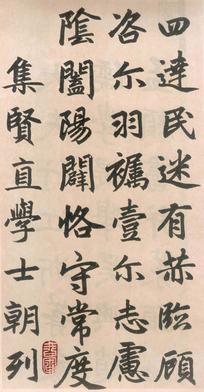 四達民迷有恭臨顧
咨尓羽襹壹尓志慮
陰闔陽闢恪守常度
集賢直學士朝列